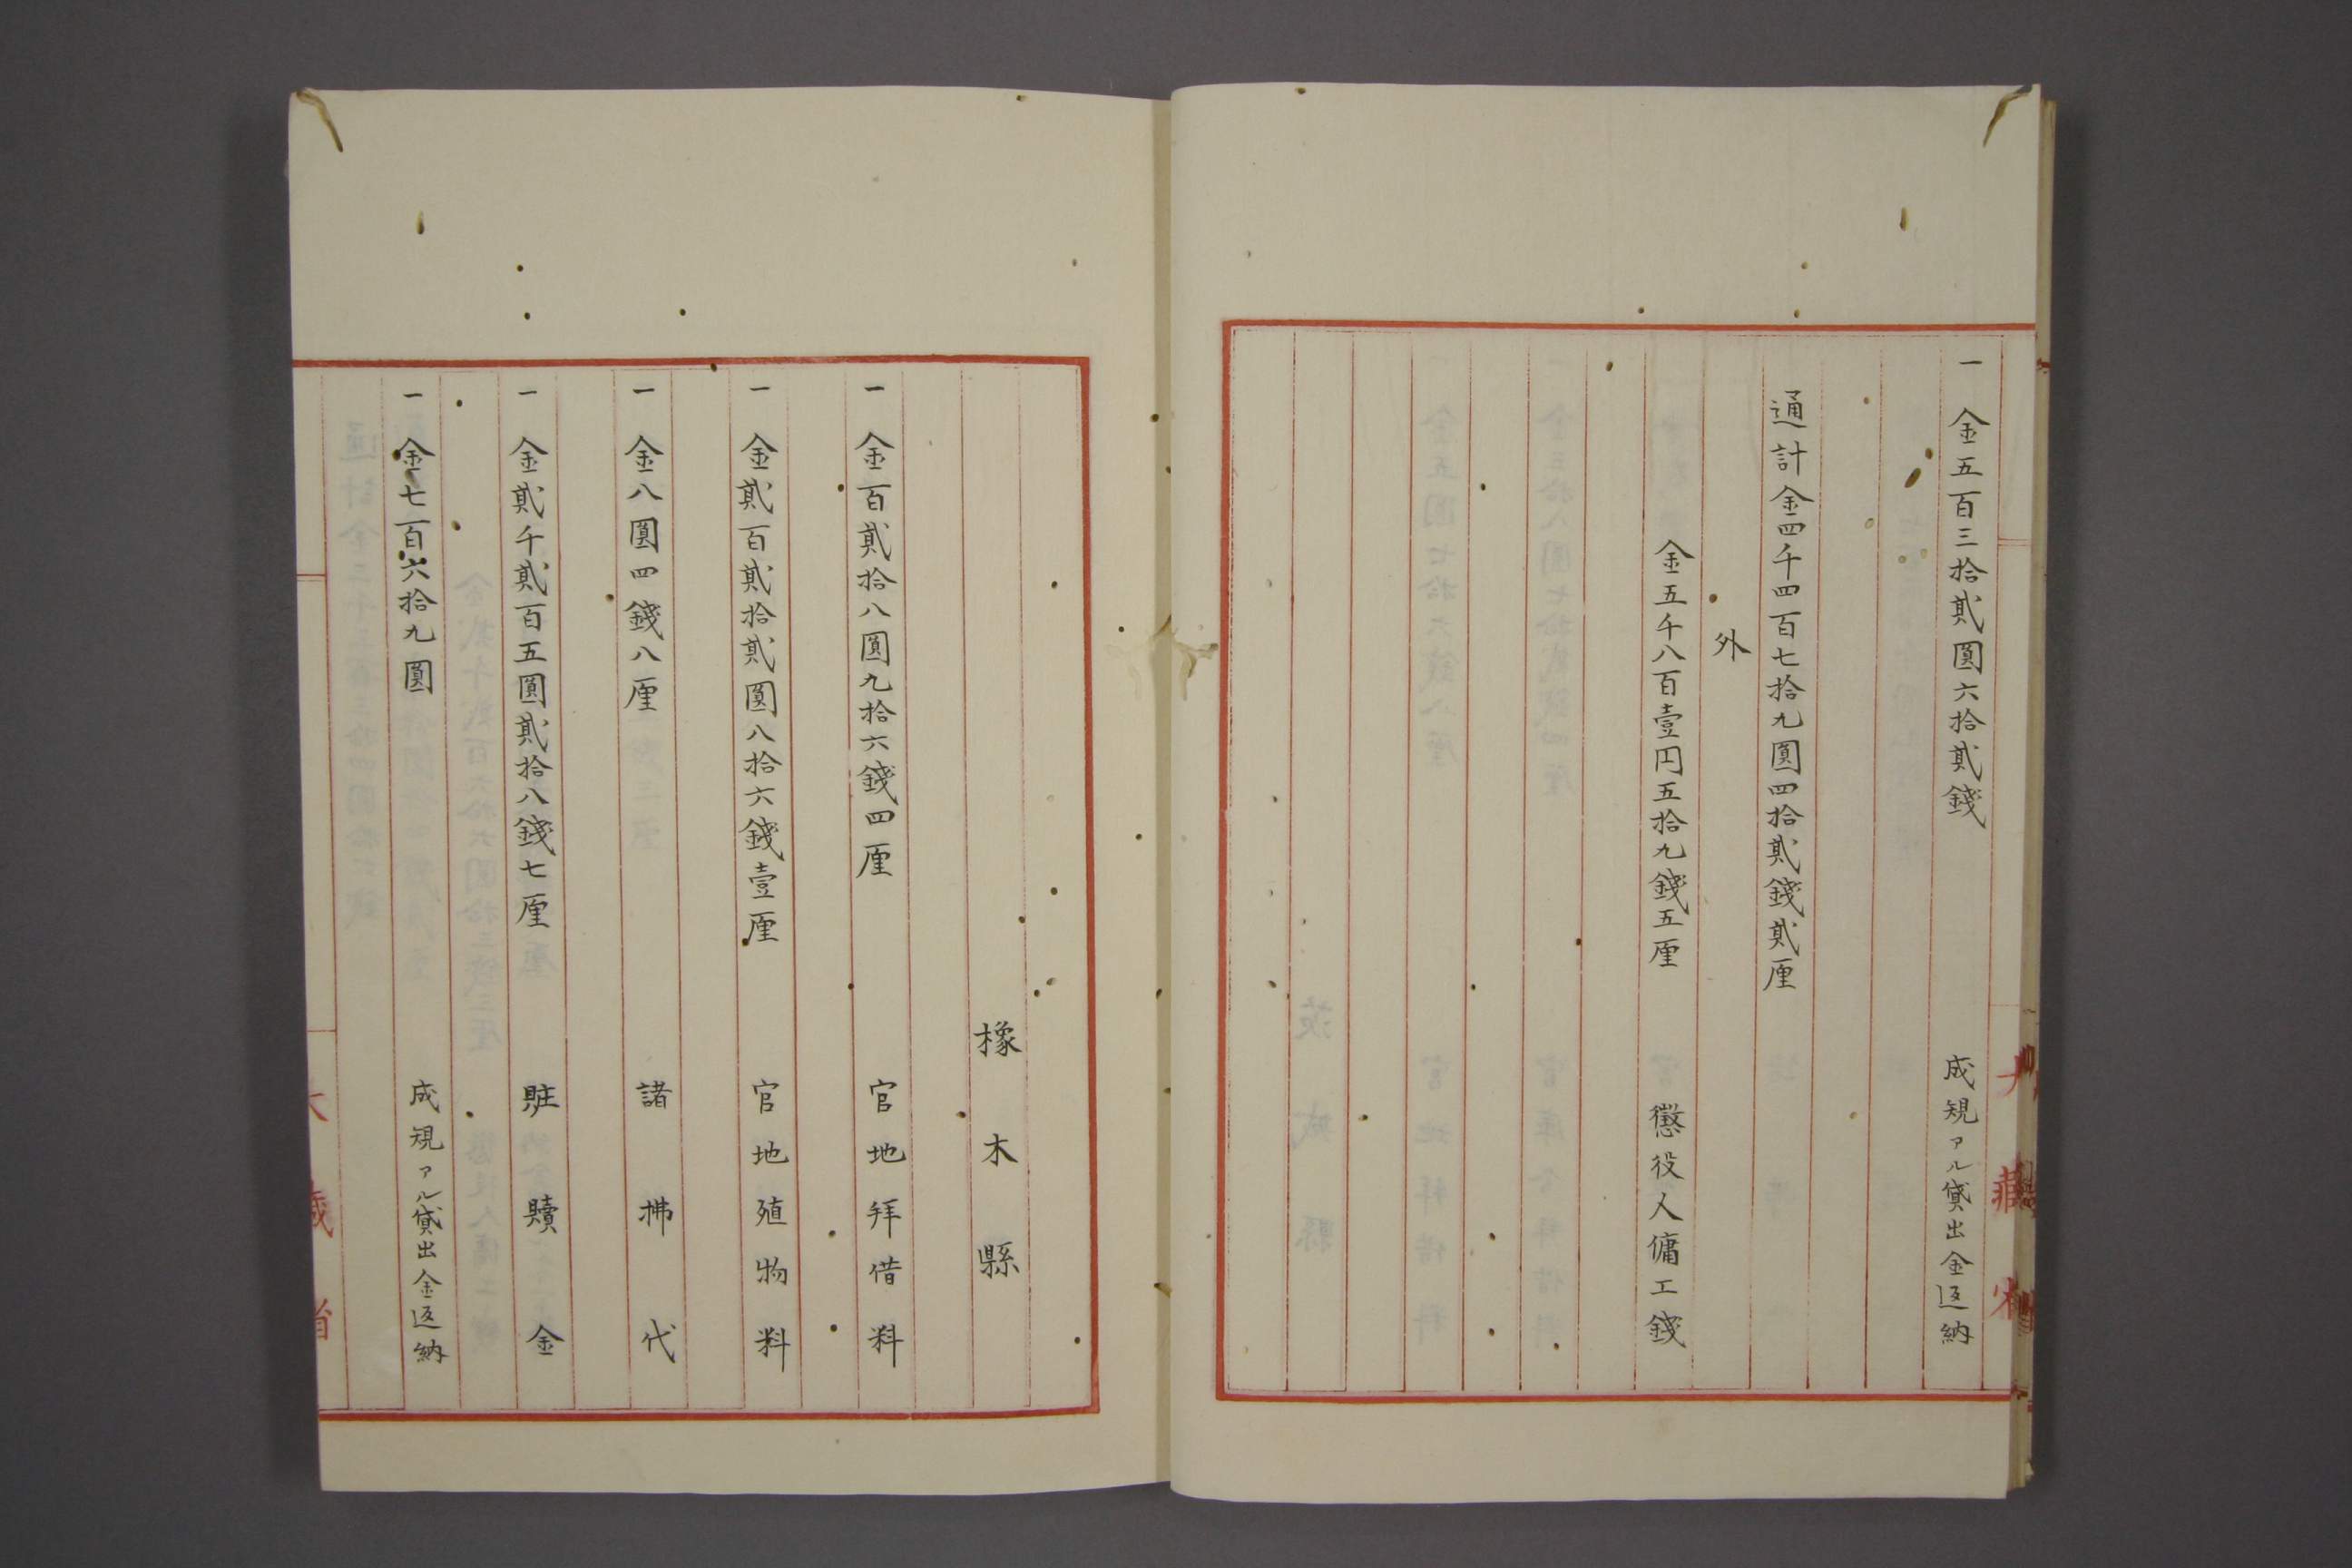 一金五百三拾貳圓六拾貳錢　成規アル貸出金返納
通計金四千四百七拾九圓四拾貳錢貳厘
外
金五千八百壹円五拾九錢五厘　懲役人傭工錢
橡木縣
一金百貳拾八圓九拾六錢四厘　官地拜借料
一金貳百貳拾貳圓八拾六錢壹厘　官地殖物料
一金八圓四錢八厘　諸拂代
一金貳千貳百五圓貳拾八錢七厘　賍贖金
一金七百六拾九圓　成規アル貸出金返納
大藏省